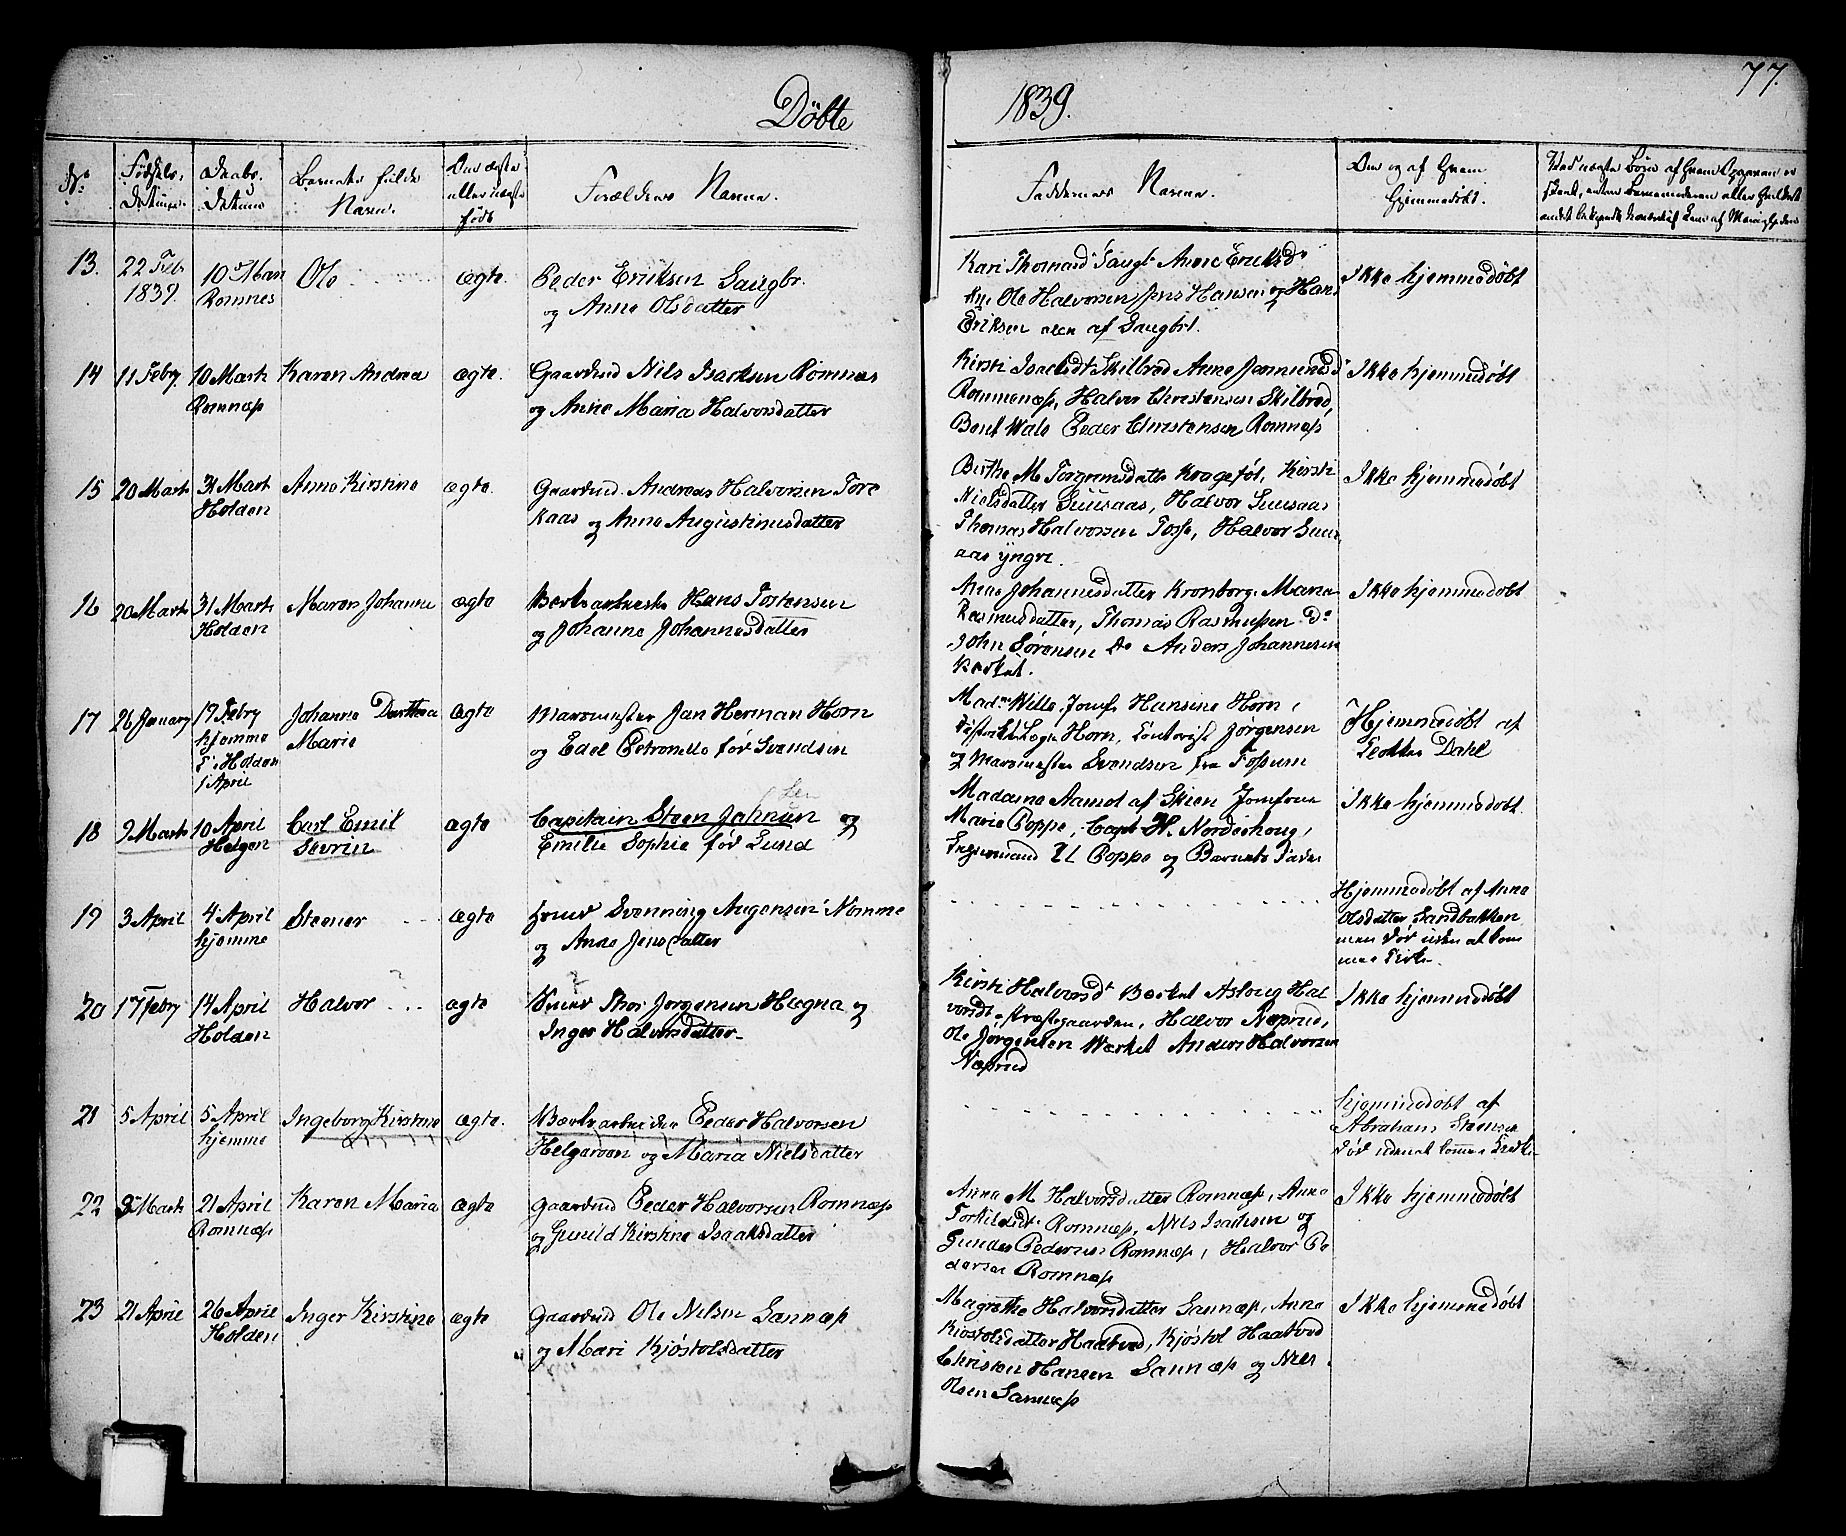 Döbte
1839.
77.
No
Fødsels-
Datum.
Daabs-
Datum
Barnets fulde
Navn.
Om ægte
eller uægte
født
Forældrenes Navne.
Faddernes Navne.
Om og af hvem
hjemmedøbt.
13.
22 Feb
1839.
10de Mart
Romnes
Ole
ægte.
Peder Eriksen Saugbr.
og Anne Olsdatter
Kari Thomasd Saugb Anne Eriksd
Ole Halvorsen Jens Hansen og Hans
Eriksen alle af Saugbr.
Ikke hjemmedøbt
14
11 Febry
10 Marts
Romnæs
Karen Andrea
ægte.
Gaardmd Nils Isaksen Romnæs
og Anne Maria Halvorsdatter
Kirsti Isaksdt Skilbred Anne
Romnæs, Halvor Christensen Skilbred,
Bent Wale Peder Christensen Romnæs
Ikke hjemmedøbt
15
20 Marts
31 Mart
Holden
Anne Kirstine
ægte.
Gaardmd. Andreas Halvorsen Tore
kaas og Anne Augustinusdatter
Berthe M Torgrimsdatter Kragefos, Kirsti
Nielsdatter Huusaas, Halvor Huusaas
Thomas Halvorsen Fosse, Halvor Huus
aas yngre.
Ikke hjemmedøbt
16
20 Marts
31 Marts
Holden
Maren Johanne
ægte
Hans Tostensen
og Johanne Johannesdatter
Anne Johannesdatter Kronborg. Maren
Rasmusdatter, Thomas Rasmusen Do
John Sørensen Do Anders Johannesen
Værket.
Ikke hjemmedøbt
17
26 January
17 Febry
hjemme
i Holden
1 April
Johanne Dorthea
Marie
ægte
Masmester Jan Herman Horn
og Edel Petronelle før Svendsen
Madm Wille, Jomfr Hansine Horn,
Horn, Jørgensen
og Masmester Svendsen fra Fossum
Hjemmedøbt af
Dahl
18
9 Marts
10 April
Helgen
Carl Emil
Sevrin
ægte
Capitain Steen Johnsen og
Emilie Sophie før Lund
Madame Aamot af Skien Jomfrue
Marie Poppe, Capt H. Norderhoug,
Poppe og Barnets Fader
Ikke hjemmedøbt.
19
3 April
4 April
hjemme
Steener
ægte
Svenning Augensen Nomme
og Anne Jensdatter
Hjemmedøbt af Anne
Olsdatter Sandbakken
men død uden at kom
me Kirke.
20
17 Febry
14 April
Holden
Halvor
ægte
Thor Jørgensen Hægna og
Inger Halvorsdatter
Kirsti Halvorsdt Værket Asloug Hal
vorsdt Præstegaarden, Halvor Næsrud,
Ole Jørgensen Værket Anders Halvorsen
Næsrud
Ikke hjemmedøbt
21
5 April
5 April
hjemme
Ingeborg Kirstine
ægte.
Værksarbeider Peder Halvorsen
Helgeroen og Maria Nielsdatter
hjemmedøbt af
Abraham
død uden at komme Kirke
22
Marts
21 April
Romnæs
Karen Maria
ægte
Gaardmd Peder Halvorsen Romnæs
og Gunild Kirstine Isaaksdatter
Anne M Halvorsdatter Romnæs, Anne
Torkildsdt. Romnæs, Nils Isaksen og
Gunder Pedersen Romnæs, Halvor Pe
dersen Romnæs
Ikke hjemmedøbt
23
21 April
26 April
Holden
Inger Kirstine
ægte
Gaardmd Ole Nilsen Sannæs
og Mari Kjøstolsdatter
Magrethe Halvorsdatter Sannæs, Anne
Kjøstolsdatter Haatved, Kjøstol Haatved
Christen Hansen Sannæs og Niels
Olsen Sannæs
Ikke hjemmedøbt